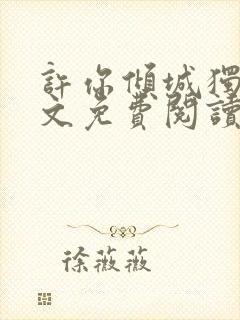 許你傾城獨
文免費閱讀
徐薇薇